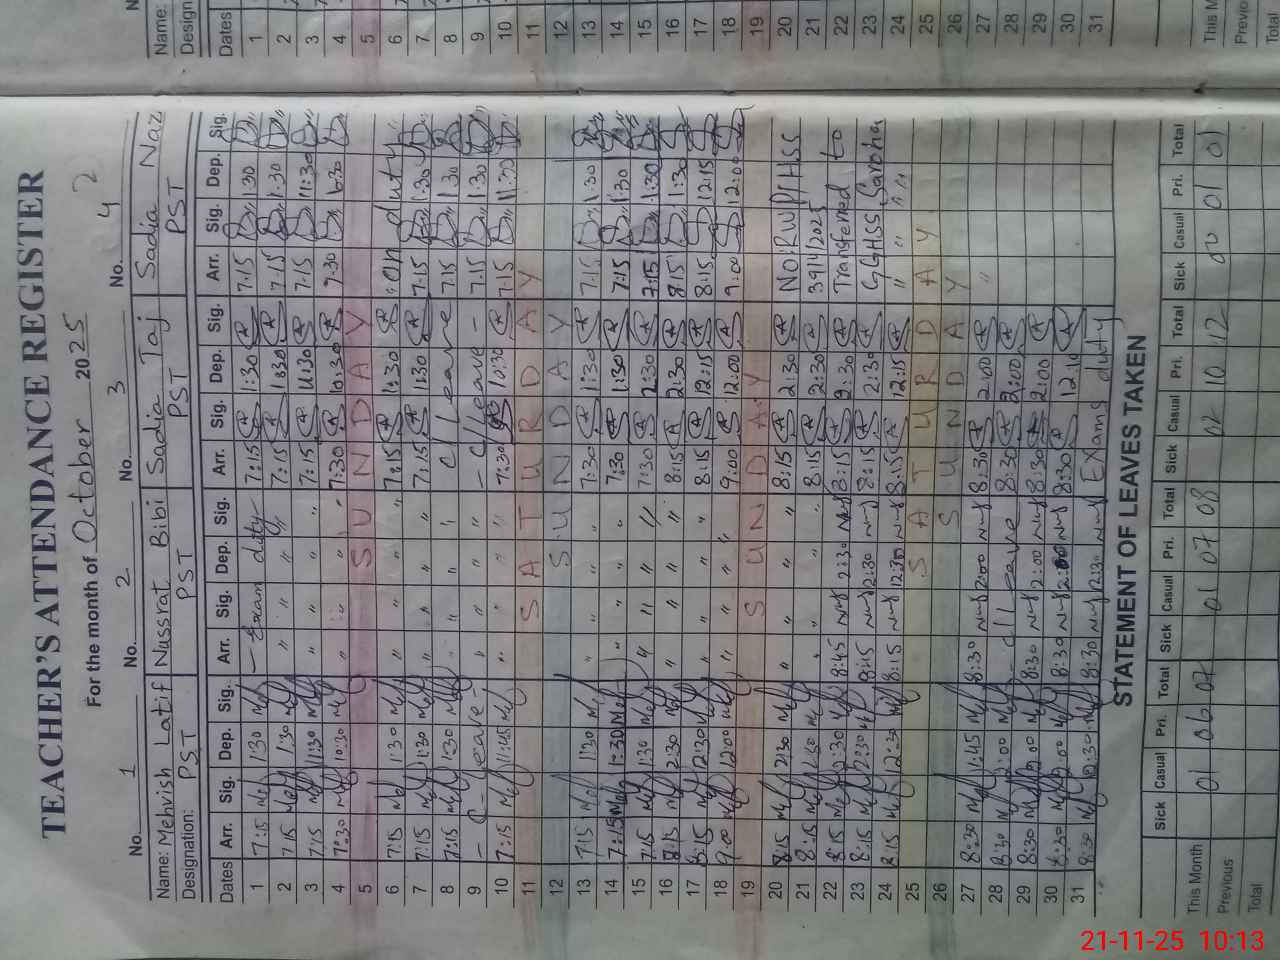 TEACHER'S ATTENDANCE REGISTER
For the month of October 2025
No. 1 No. 2 No. 3 No. 4
Name: Mehvish Latif Nussrat Bibi Sadia Taj Sadia Naz
Designation: PST PST PST PST
Dates Arr. Sig. Dep. Sig. Arr. Sig. Dep. Sig. Arr. Sig. Dep. Sig. Arr. Sig. Dep. Sig.
1 7:15 1:30 Exam duty 7:15 1:30 7:15 1:30
2 7:15 1:30 " " " " 7:15 1:30 7:15 1:30
3 7:15 11:30 " " " " 7:15 11:30 7:15 11:30
4 7:30 10:30 " " " " 7:30 10:30 7:30 10:30
5 SUNDAY
6 7:15 1:30 " " " " 7:15 1:30 on duty
7 7:15 1:30 " " " " 7:15 1:30 7:15 1:30
8 7:15 1:30 " " " C/Leave 7:15 1:30
9 C-Leave " " " " C/Leave 7:15 1:30
10 7:15 11:45 " " " " 7:30 10:30 7:15 11:30
11 SATURDAY
12 SUNDAY
13 7:15 1:30 " " " " 7:30 1:30 7:15 1:30
14 7:15 1:30 " " " " 7:30 1:30 7:15 1:30
15 7:15 1:30 " " " " 7:30 2:30 7:15 1:30
16 8:15 2:30 " " " " 8:15 2:30 8:15 1:30
17 8:15 12:30 " " " " 8:15 12:15 8:15 12:15
18 9:00 12:00 " " " " 9:00 12:00 9:00 12:00
19 SUNDAY
20 8:15 2:30 " " " " 8:15 2:30
21 8:15 " " " " 8:15 2:30 3914/2025
22 8:15 2:30 8:45 2:30 8:15 2:30 Transferred to
23 8:15 2:30 8:45 2:30 8:15 2:30 GGHSS
24 8:15 12:30 8:15 12:30 8:15 12:15 " " "
25 SATURDAY
26 SUNDAY
27 8:30 1:45 8:30 2:00 8:30 2:00 "
28 8:30 2:00 C/Leave 8:30 2:00
29 8:30 2:00 8:30 2:00 8:30 2:00
30 8:30 2:00 8:30 2:00 8:30 12:10
31 8:30 12:30 8:30 12:30 Exams duty
STATEMENT OF LEAVES TAKEN
Sick Casual Pri. Total Sick Casual Pri. Total Sick Casual Pri. Total Sick Casual Pri. Total
This Month 01 06 07 01 07 08 02 10 12 00 01 01
Previous
Total
Name:
Design
Dates
1
2
3
4
5
6
7
8
9
10
11
12
13
14
15
16
17
18
19
20
21
22
23
24
25
26
27
28
29
30
31
This M
Previo
Total
21-11-25 10:13